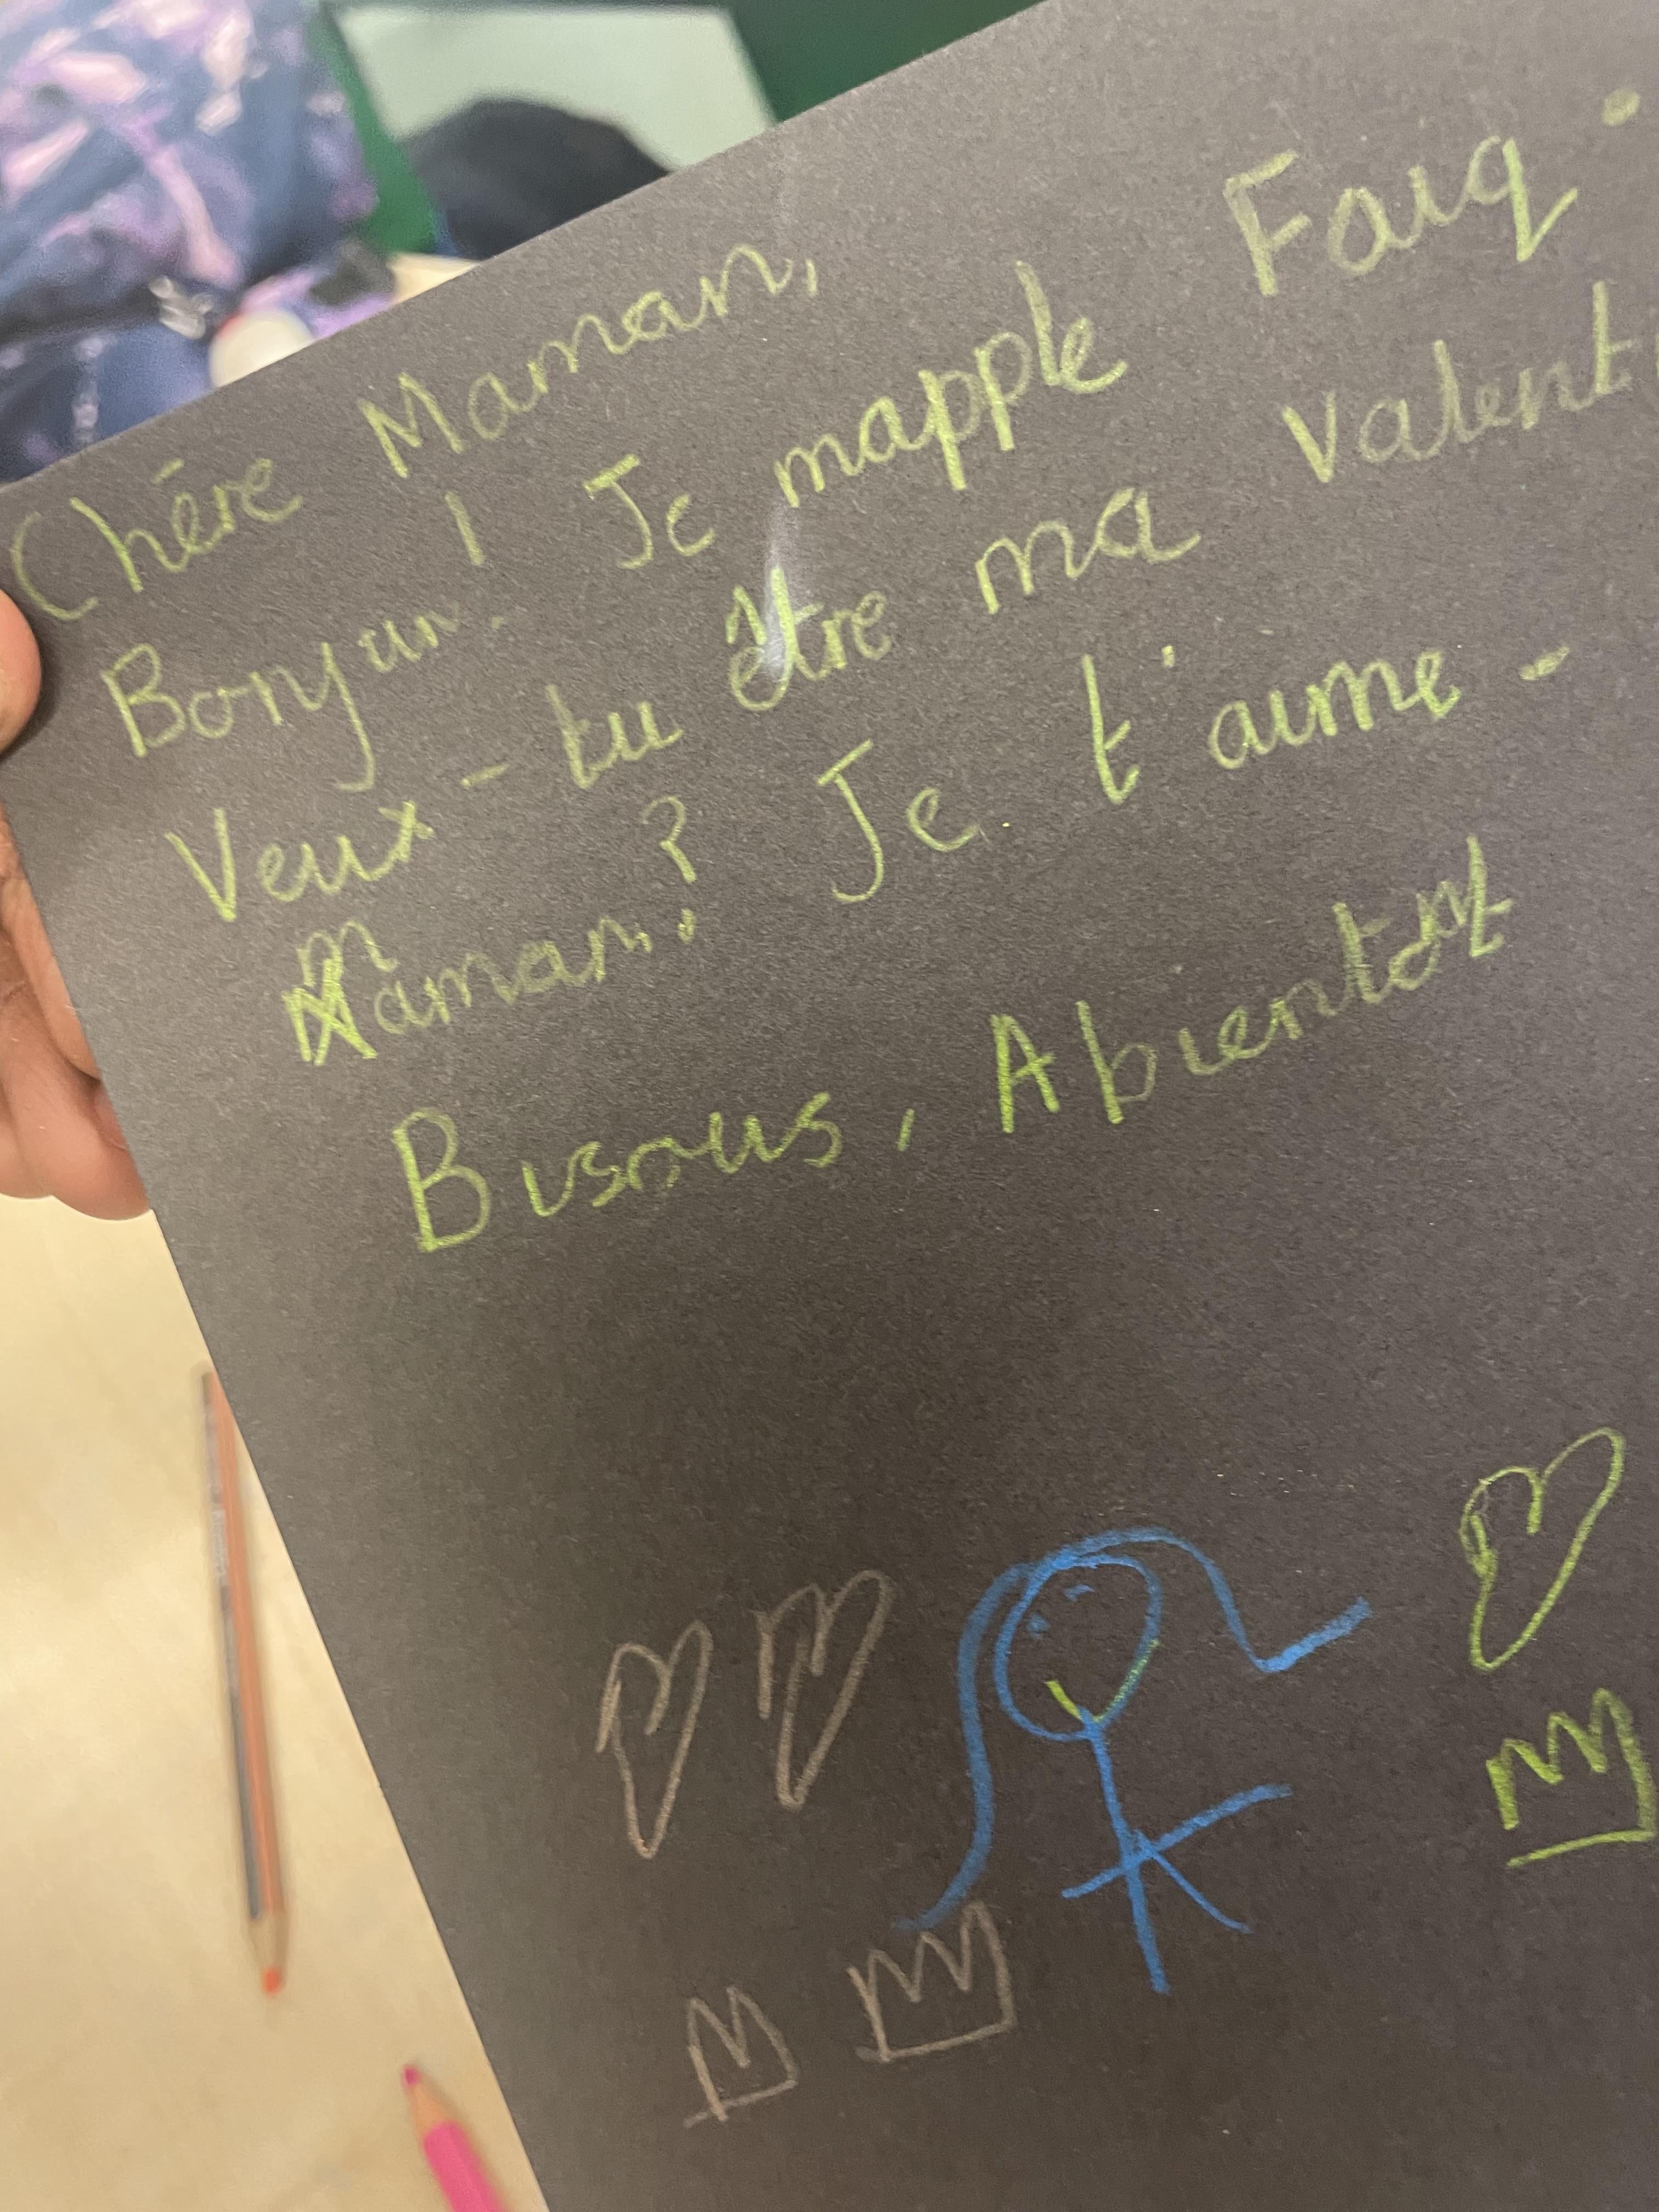 Chère Maman,
Bonjur! Je mapple Faiq.
Veux-tu être ma valenti
maman? Je t'aime-
Bisous, Abientôt